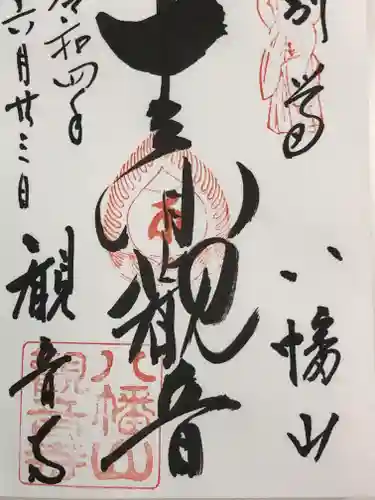 別尊
八幡山
観音
令和四年
六月廿三日
観音寺
八幡山
観音寺